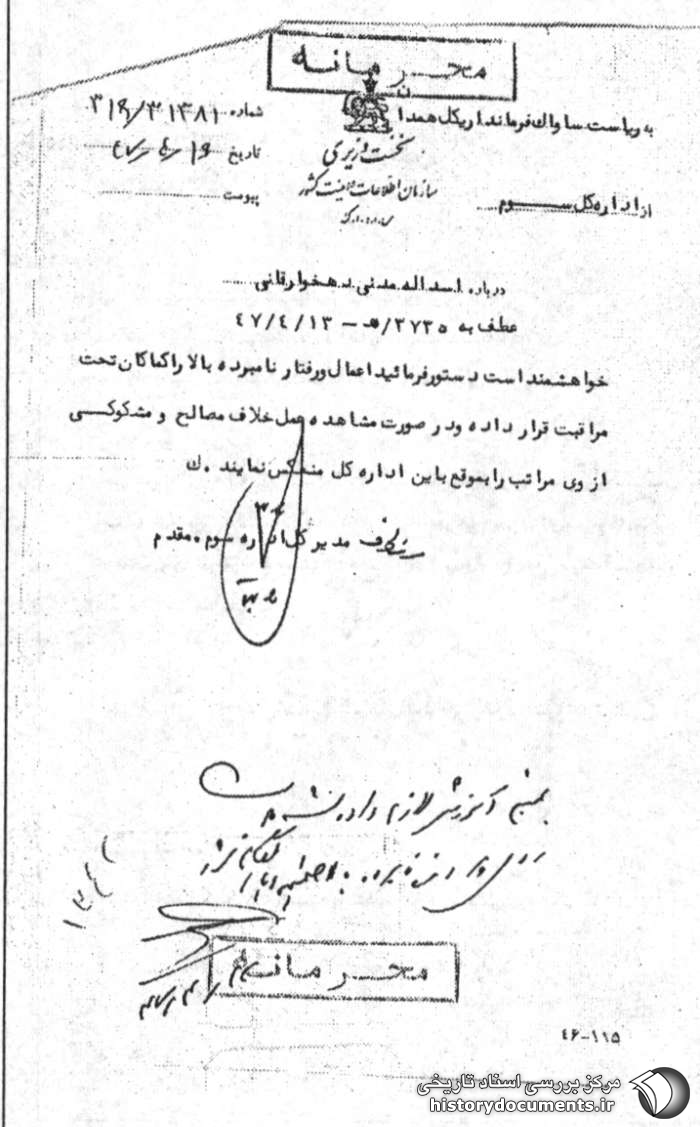 محرمانه
به ریاست ساواک فرمانداریکل همدان
شماره ۳۱۶/۳۱۳۸۱
نخست وزیری
تاریخ
سازمان اطلاعات و امنیت کشور
از اداره کل ســـوم
پیوست
درباره اسداله مدنی دهخوارقانی
عطف به ۲۷۳۵/ه – ۴۷/۴/۱۳
خواهشمند است دستور فرمائید اعمال و رفتار نامبرده بالا را کماکان تحت
مراقبت قرار داده و در صورت مشاهده عمل خلاف مصالح و مشکوکــی
از وی مراتب را بموقع باین اداره کل منعکس نمایند . ك
مدیر کل اداره سوم . مقدم
بمنبع آموزش لازم داده شد
محرمانه
۴۶-۱۱۵
مرکز بررسی اسناد تاریخی
historydocuments.ir